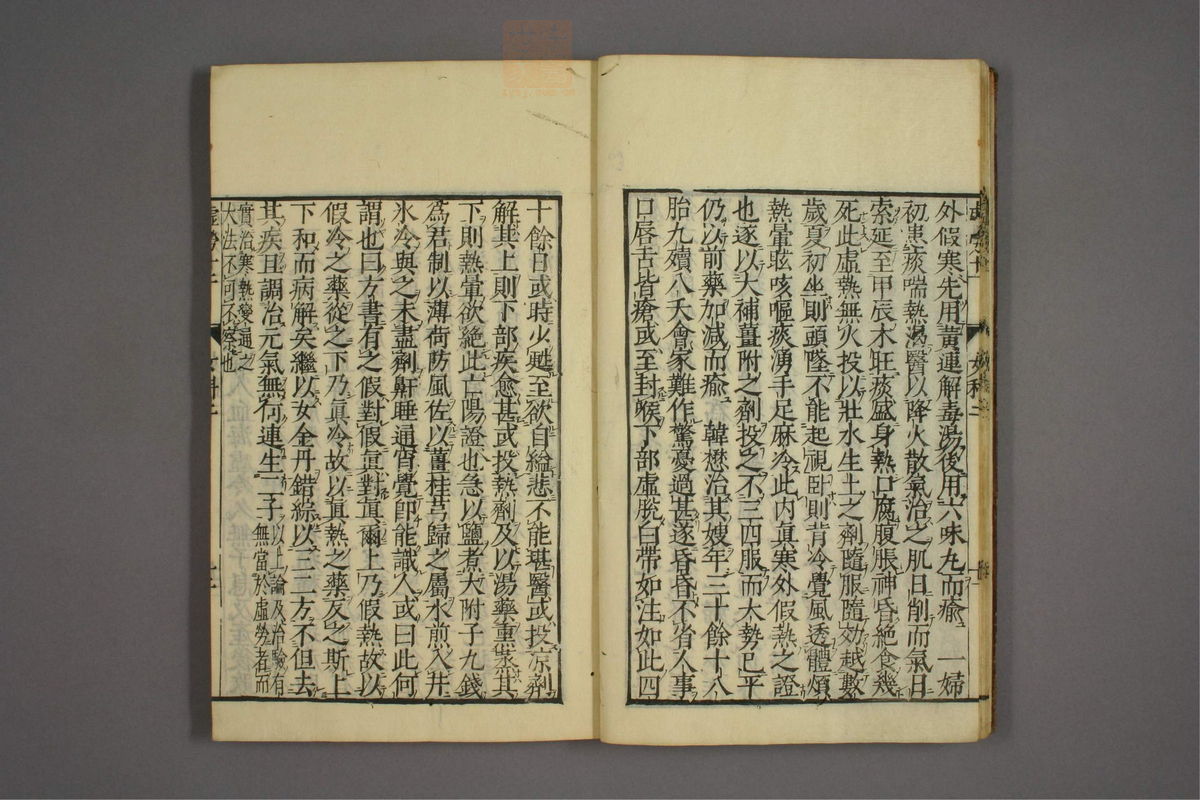 外假寒先用黃連解毒湯後用六味丸而瘉　一婦
初患痰喘熱渴醫以降火散氣治之肌日削而氣日
索延至甲辰木旺痰盛身熱口腐腹脹神昏絶食幾
死此虛熱無火投以壯水生土之劑隨服隨効越數
歲夏初坐則頭墜不能起視臥則背冷覺風透體煩
熱暈眩咳嘔痰湧手足麻冷此内眞寒外假熱之證
也逐以大補薑附之劑投之不三四服而大勢已平
仍以前藥加減而瘉　韓懋治其嫂年三十餘十八
胎九殰八夭會家難作驚憂過甚遂昏昏不省人事
口唇舌皆瘡或至封喉下部虛脫白帶如注如此四
十餘日或時少甦至欲自縊悲不能堪醫或投凉劑
解其上則下部疾愈甚或投熱劑及以湯藥熏蒸其
下則熱暈欲絶此亡陽證也急以鹽煮大附子九錢
爲君制以薄荷防風佐以薑桂芎歸之屬水煎入井
氷冷與之未盡劑鼾睡通宵覺卽能識人或曰此何
謂也曰方書有之假對假眞對眞爾上乃假熱故以
假冷之藥從之下乃眞冷故以眞熱之藥反之斯上
下和而病解矣繼以女金丹錯綜以三二方不但去
其疾且調治元氣無何連生二子以上論及治驗有
無當於虛勞者而
實治寒熱變通之
大法不可不察也
虛勞十二　女科二